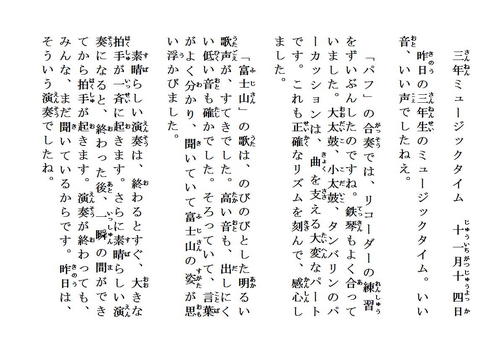 三年ミュージックタイム　十一月十四日
昨日の三年生のミュージックタイム。いい
音、いい声でしたねえ。
「パフ」の合奏では、リコーダーの練習
をずいぶんしたのですね。鉄琴もよく合って
いました。大太鼓、小太鼓、タンバリンのパ
ーカッションは、曲を支える大変なパート
です。これも正確なリズムを刻んで、感心し
ました。
「富士山」の歌は、のびのびとした明るい
歌声が、すてきでした。高い音も、出しにく
い低い音も確かでした。そろっていて、言葉
がよく分かり、聞いていて富士山の姿が思
い浮かびました。
素晴らしい演奏は、終わるとすぐ、大きな
拍手が一斉に起きます。さらに素晴らしい演
奏になると、終わった後、一瞬の間ができ
てから拍手が起きます。演奏が終わっても、
みんな、まだ聞いているからです。昨日は、
そういう演奏でしたね。